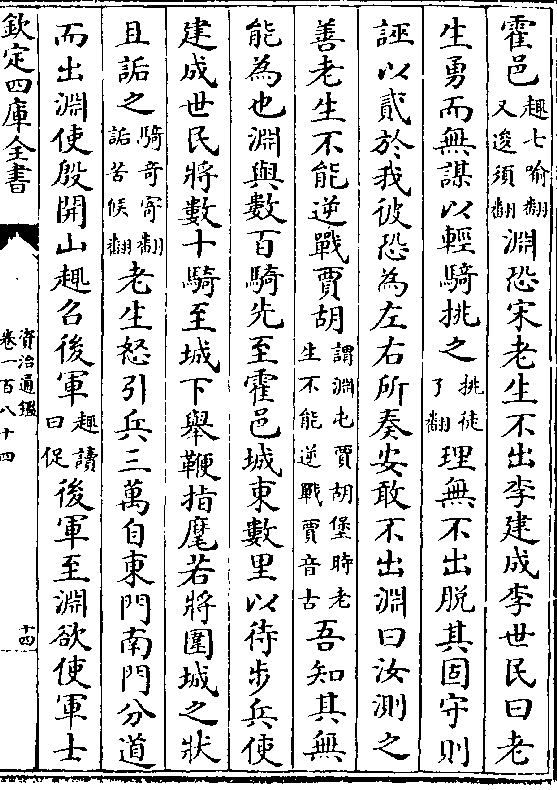 霍邑趣七喻翻又逡須翻淵恐宋老生不出李建成李世民曰老
生勇而無謀以輕騎挑之挑徒了翻理無不出脱其固守則
誣以貳於我彼恐為左右所奏安敢不出淵曰汝測之
善老生不能逆戰賈胡謂淵屯賈胡堡時老生不能逆戰賈音古吾知其無
能為也淵與數百騎先至霍邑城東數里以待步兵使
建成世民將數十騎至城下舉鞭指麾若將圍城之狀
且詬之騎奇寄翻詬苦候翻老生怒引兵三萬自東門南門分道
而出淵使殷開山趣召後軍趣讀曰促後軍至淵欲使軍士
欽定四庫全書
資治通鑑
卷一百八十四
十四